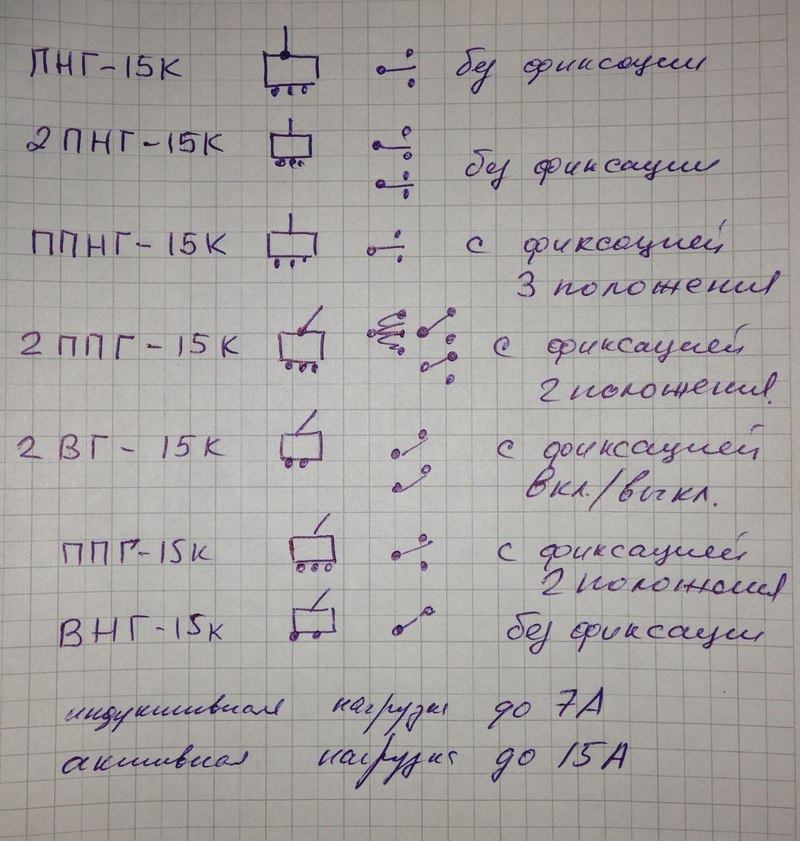 ПНГ-15К без фиксации
2ПНГ-15К без фиксации
ППНГ-15К с фиксацией
3 положения
2ППГ-15К с фиксацией
2 положения.
2ВГ-15К с фиксацией
вкл./выкл.
ППГ-15К с фиксацией
2 положения
ВНГ-15К без фиксации
индуктивная нагрузка до 7А
активная нагрузка до 15А